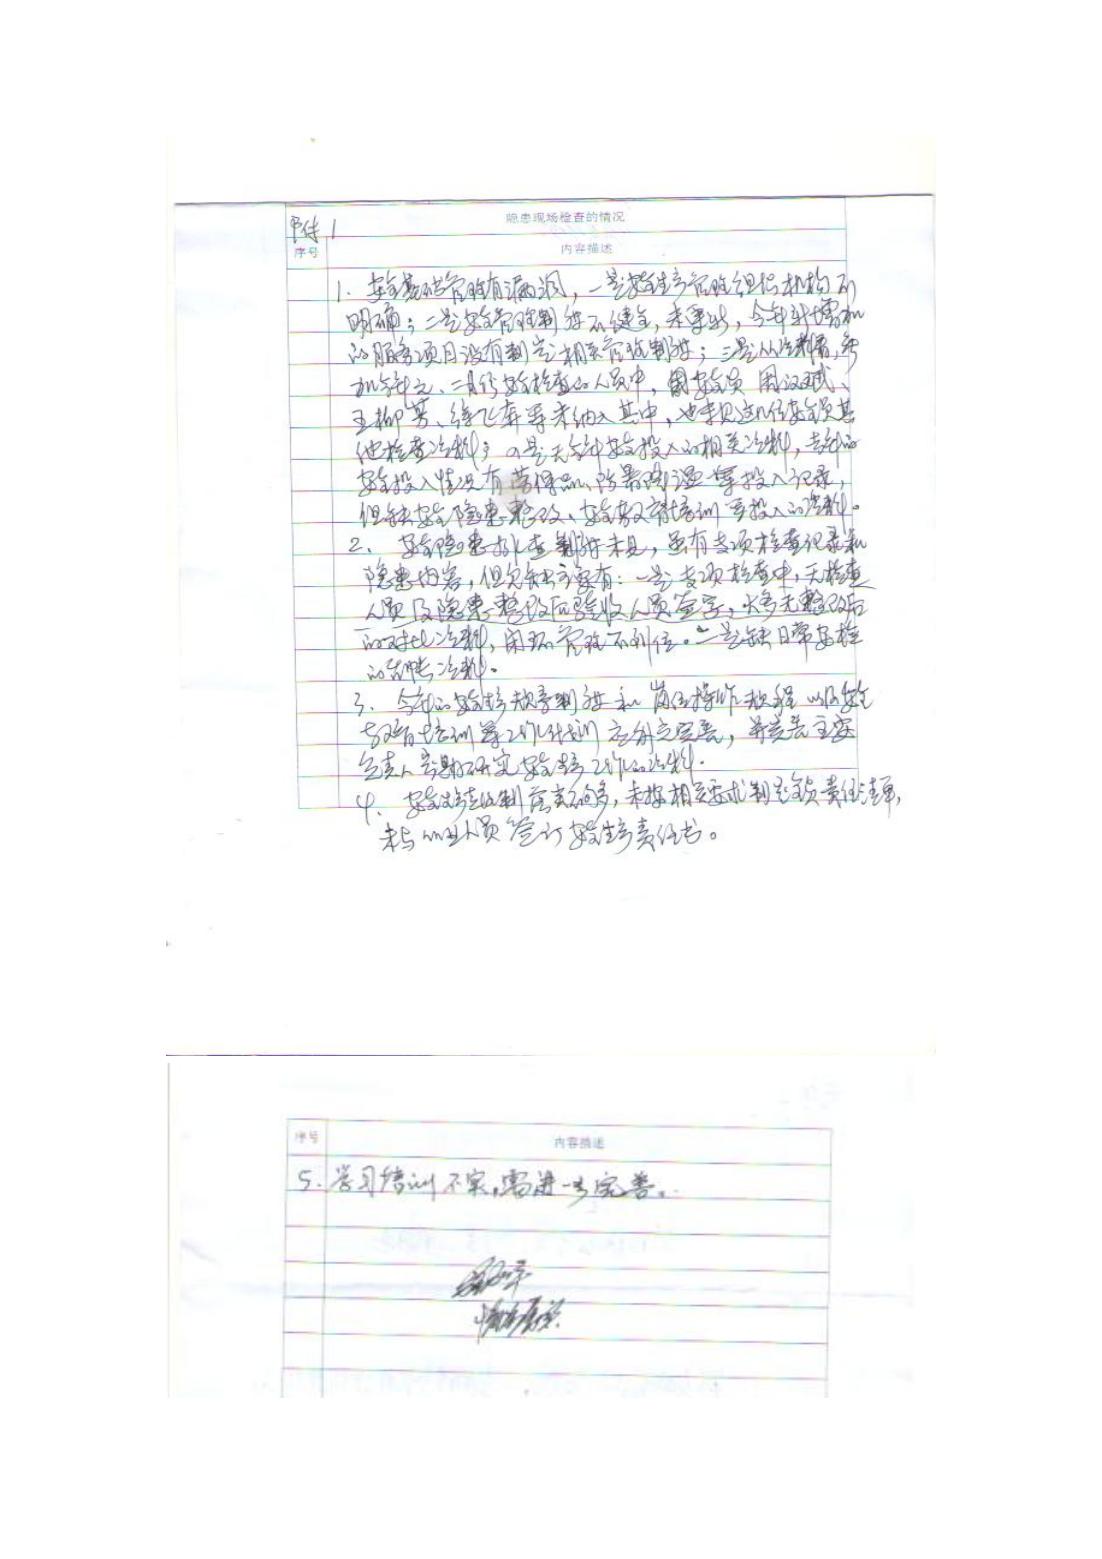 附件1
隐患现场检查的情况
序号 内容描述
1. 安全基础管理有漏洞，一是安全生产管理组织机构不
明确；二是安全管理制度不健全，今年新增加
的服务项目没有制定相关管理制度；三是从资料看，参
加今年元、二月份安全检查的人员中，安全员
等未纳入其中，也未见这几位安全员其
他检查资料；四是无今年安全投入的相关资料，去年的
安全投入情况有劳保品、防暑降温等投入记录，
但缺安全隐患整改、安全教育培训等投入的资料。
2. 安全隐患排查制度未见，虽有专项检查记录和
隐患内容，但欠缺主要有：一是专项检查中，无检查
人员及隐患整改后验收人员签字，大多无整改后
的对比资料，闭环管理不到位。二是缺日常安检
的台账资料。
3. 今年的安全生产规章制度和岗位操作规程以及安全
教育培训等工作计划应补充完善，并完善主要
负责人定期研究安全生产工作的资料。
4. 安全生产责任制落实不够，未按相关要求制定全员责任清单，
未与从业人员签订安全生产责任书。
序号 内容描述
5. 学习培训不实，需进一步完善。